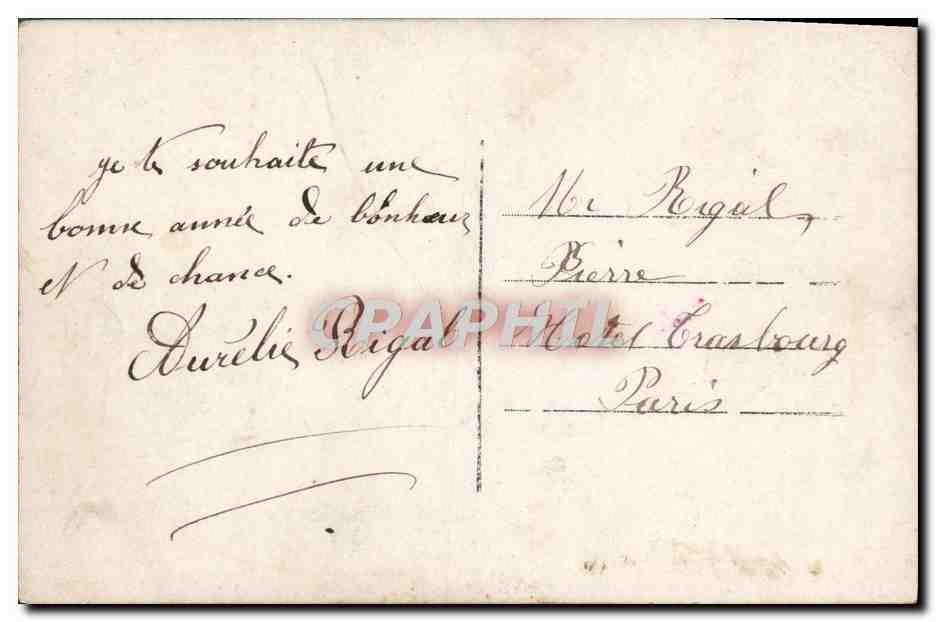 je te souhaite une
bonne année de bonheur
et de chance.
Aurélie Rigal
Mr Rigal
Pierre
Hotel Trasbourg
Paris
CARTAPHIL